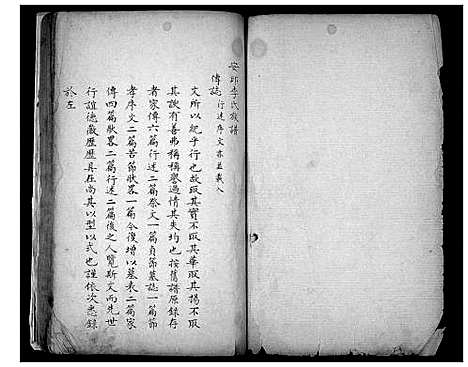 安邱李氏族譜
傳誌 行述序文亦並載入
文所以紀乎行也故取其實不取其華取其揚不取
其諛有善弗稱稱譽過情其失均也按舊譜原錄存
者家傳六篇行述二篇祭文一篇貞節墓誌一篇節
孝序文二篇苦節狀畧一篇今復增以墓表二篇家
傳四篇狀畧二篇行述二篇後之人覽斯文而先世
行誼德徽歷歷具在尚其以型以式也謹依次悉錄
於左